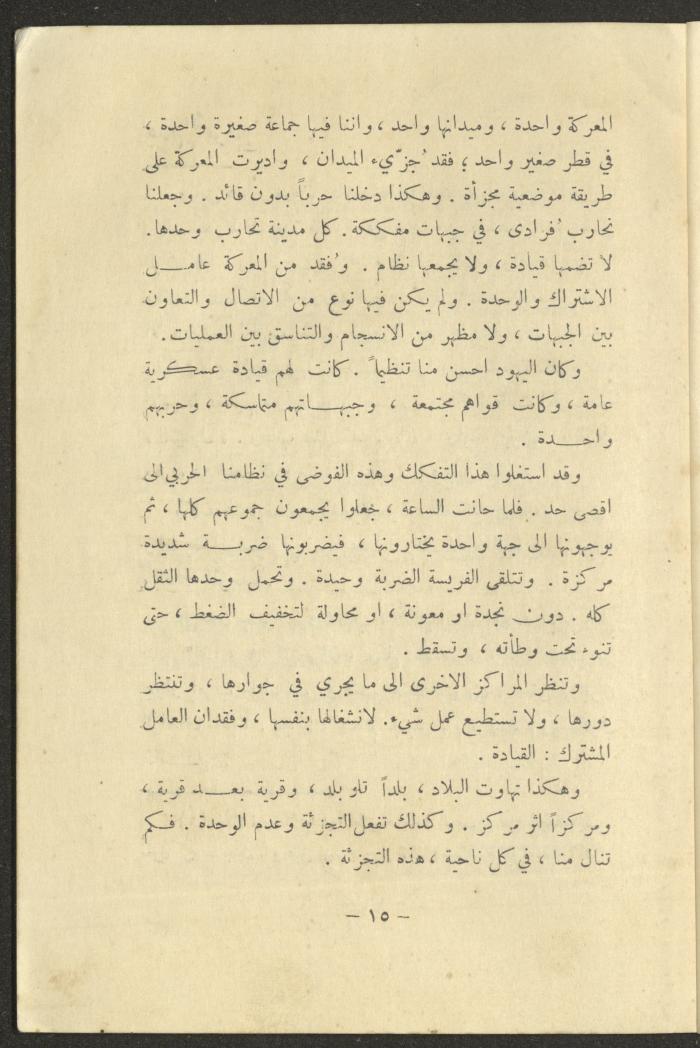 المعركة واحدة ، وميدانها واحد ، واننا فيها جماعة صغيرة واحدة ،
في قطر صغير واحد ؛ فقد ُجزّيء الميدان ، واديرت المعركة على
طريقة موضعية مجزأة . وهكذا دخلنا حرباً بدون قائد . وجعلنا
نحارب ُفرادى ، في جبهات مفككة . كل مدينة تحارب وحدها.
لا تضمها قيادة ، ولا يجمعها نظام . وُفقد من المعركة عامـــل
الاشتراك والوحدة . ولم يكن فيها نوع من الاتصال والتعاون
بين الجبهات ، ولا مظهر من الانسجام والتناسق بين العمليات .
وكان اليهود احسن منا تنظيماً . كانت لهم قيادة عسكرية
عامة ، وكانت قواهم مجتمعة ، وجبهـــاتهم متماسكة ، وحربهم
واحـــدة .
وقد استغلوا هذا التفكك وهذه الفوضى في نظامنا الحربي الى
اقصى حد . فلما حانت الساعة ، جعلوا يجمعون جموعهم كلها ، ثم
يوجهونها الى جهة واحدة يختارونها ، فيضربونها ضربـــة شديدة
مركزة . وتتلقى الفريسة الضربة وحيدة . وتحمل وحدها الثقل
كله . دون نجدة او معونة ، او محاولة لتخفيف الضغط ، حتى
تنوء تحت وطأته ، وتسقط .
وتنظر المراكز الاخرى الى ما يجري في جوارها ، وتنتظر
دورها ، ولا تستطيع عمل شيء. لانشغالها بنفسها ، وفقدان العامل
المشترك : القيادة .
وهكذا تهاوت البلاد ، بلداً تلو بلد ، وقرية بعـــد قرية ،
ومركزاً اثر مركز . وكذلك تفعل التجزئة وعدم الوحدة . فـكم
تنال منا ، في كل ناحية ، هذه التجزئة .
– ١٥ –